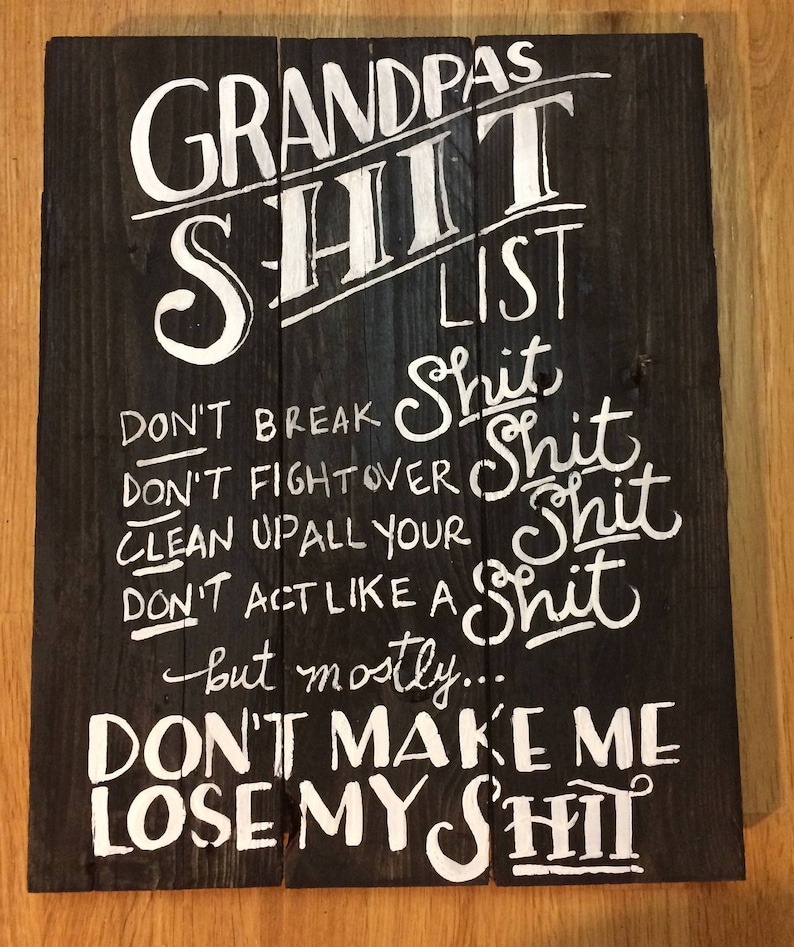 GRANDPAS
SHIT
LIST
DON'T BREAK Shit
DON'T FIGHT OVER Shit
CLEAN UP ALL YOUR Shit
DON'T ACT LIKE A Shit
but mostly...
DON'T MAKE ME
LOSE MY SHIT